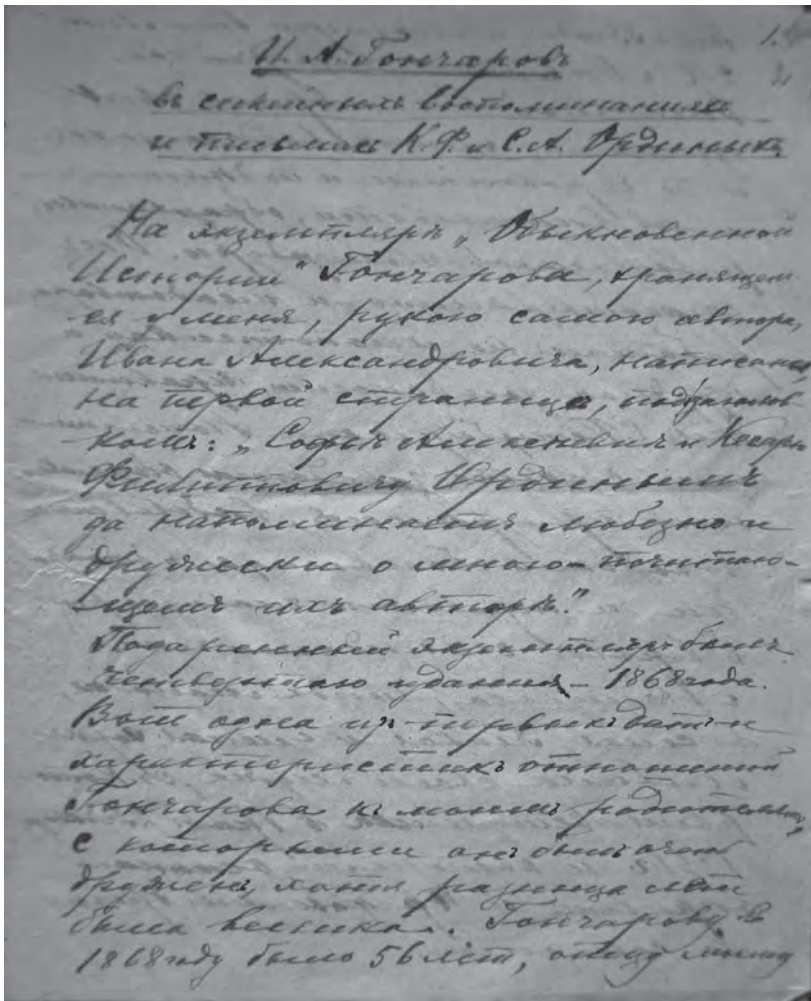 1.
2
И. А. Гончаровъ
въ семейныхъ воспоминаніяхъ
и письмахъ К. Ф. и С. А. Ордин­ыхъ
На экземплярѣ „Обыкновенной
Исторіи" Гончарова, хранящем
ся у меня, рукою самого автора,
Ивана Александровича, написано,
на первой страницѣ, под заголов
комъ: „Софьѣ Алексѣевнѣ и Кесарю
Филипповичу Ординымъ
да напоминаетъ любезно и
дружески о много-почитаю-
щемъ ихъ авторѣ."
Подаренный экземпляръ былъ
четвертаго изданія – 1868 года.
Вот одна из первыхъ датъ и
характеристикъ отношеній
Гончарова к моимъ родителямъ,
с которыми онъ былъ очень
друженъ, хотя разница лѣтъ
была велика. Гончарову в
1868 году было 56 лѣт, отцу моему